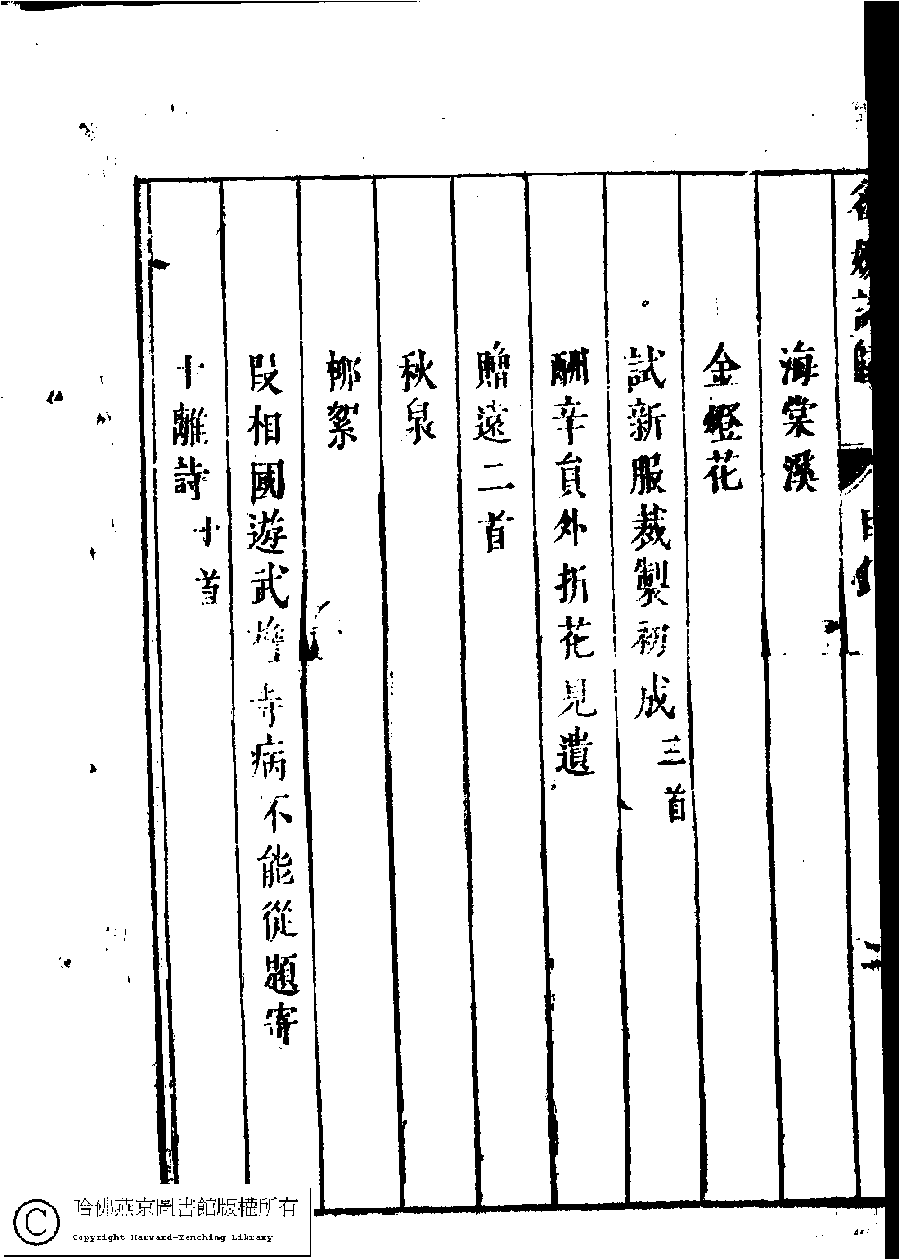 海棠溪
金燈花
試新服裁製初成三首
酬辛員外折花見遺
贈遠二首
秋泉
柳絮
段相國遊武擔寺病不能從題寄
十離詩十首
哈佛燕京圖書館版權所有
Copyright Harvard-Yenching Library